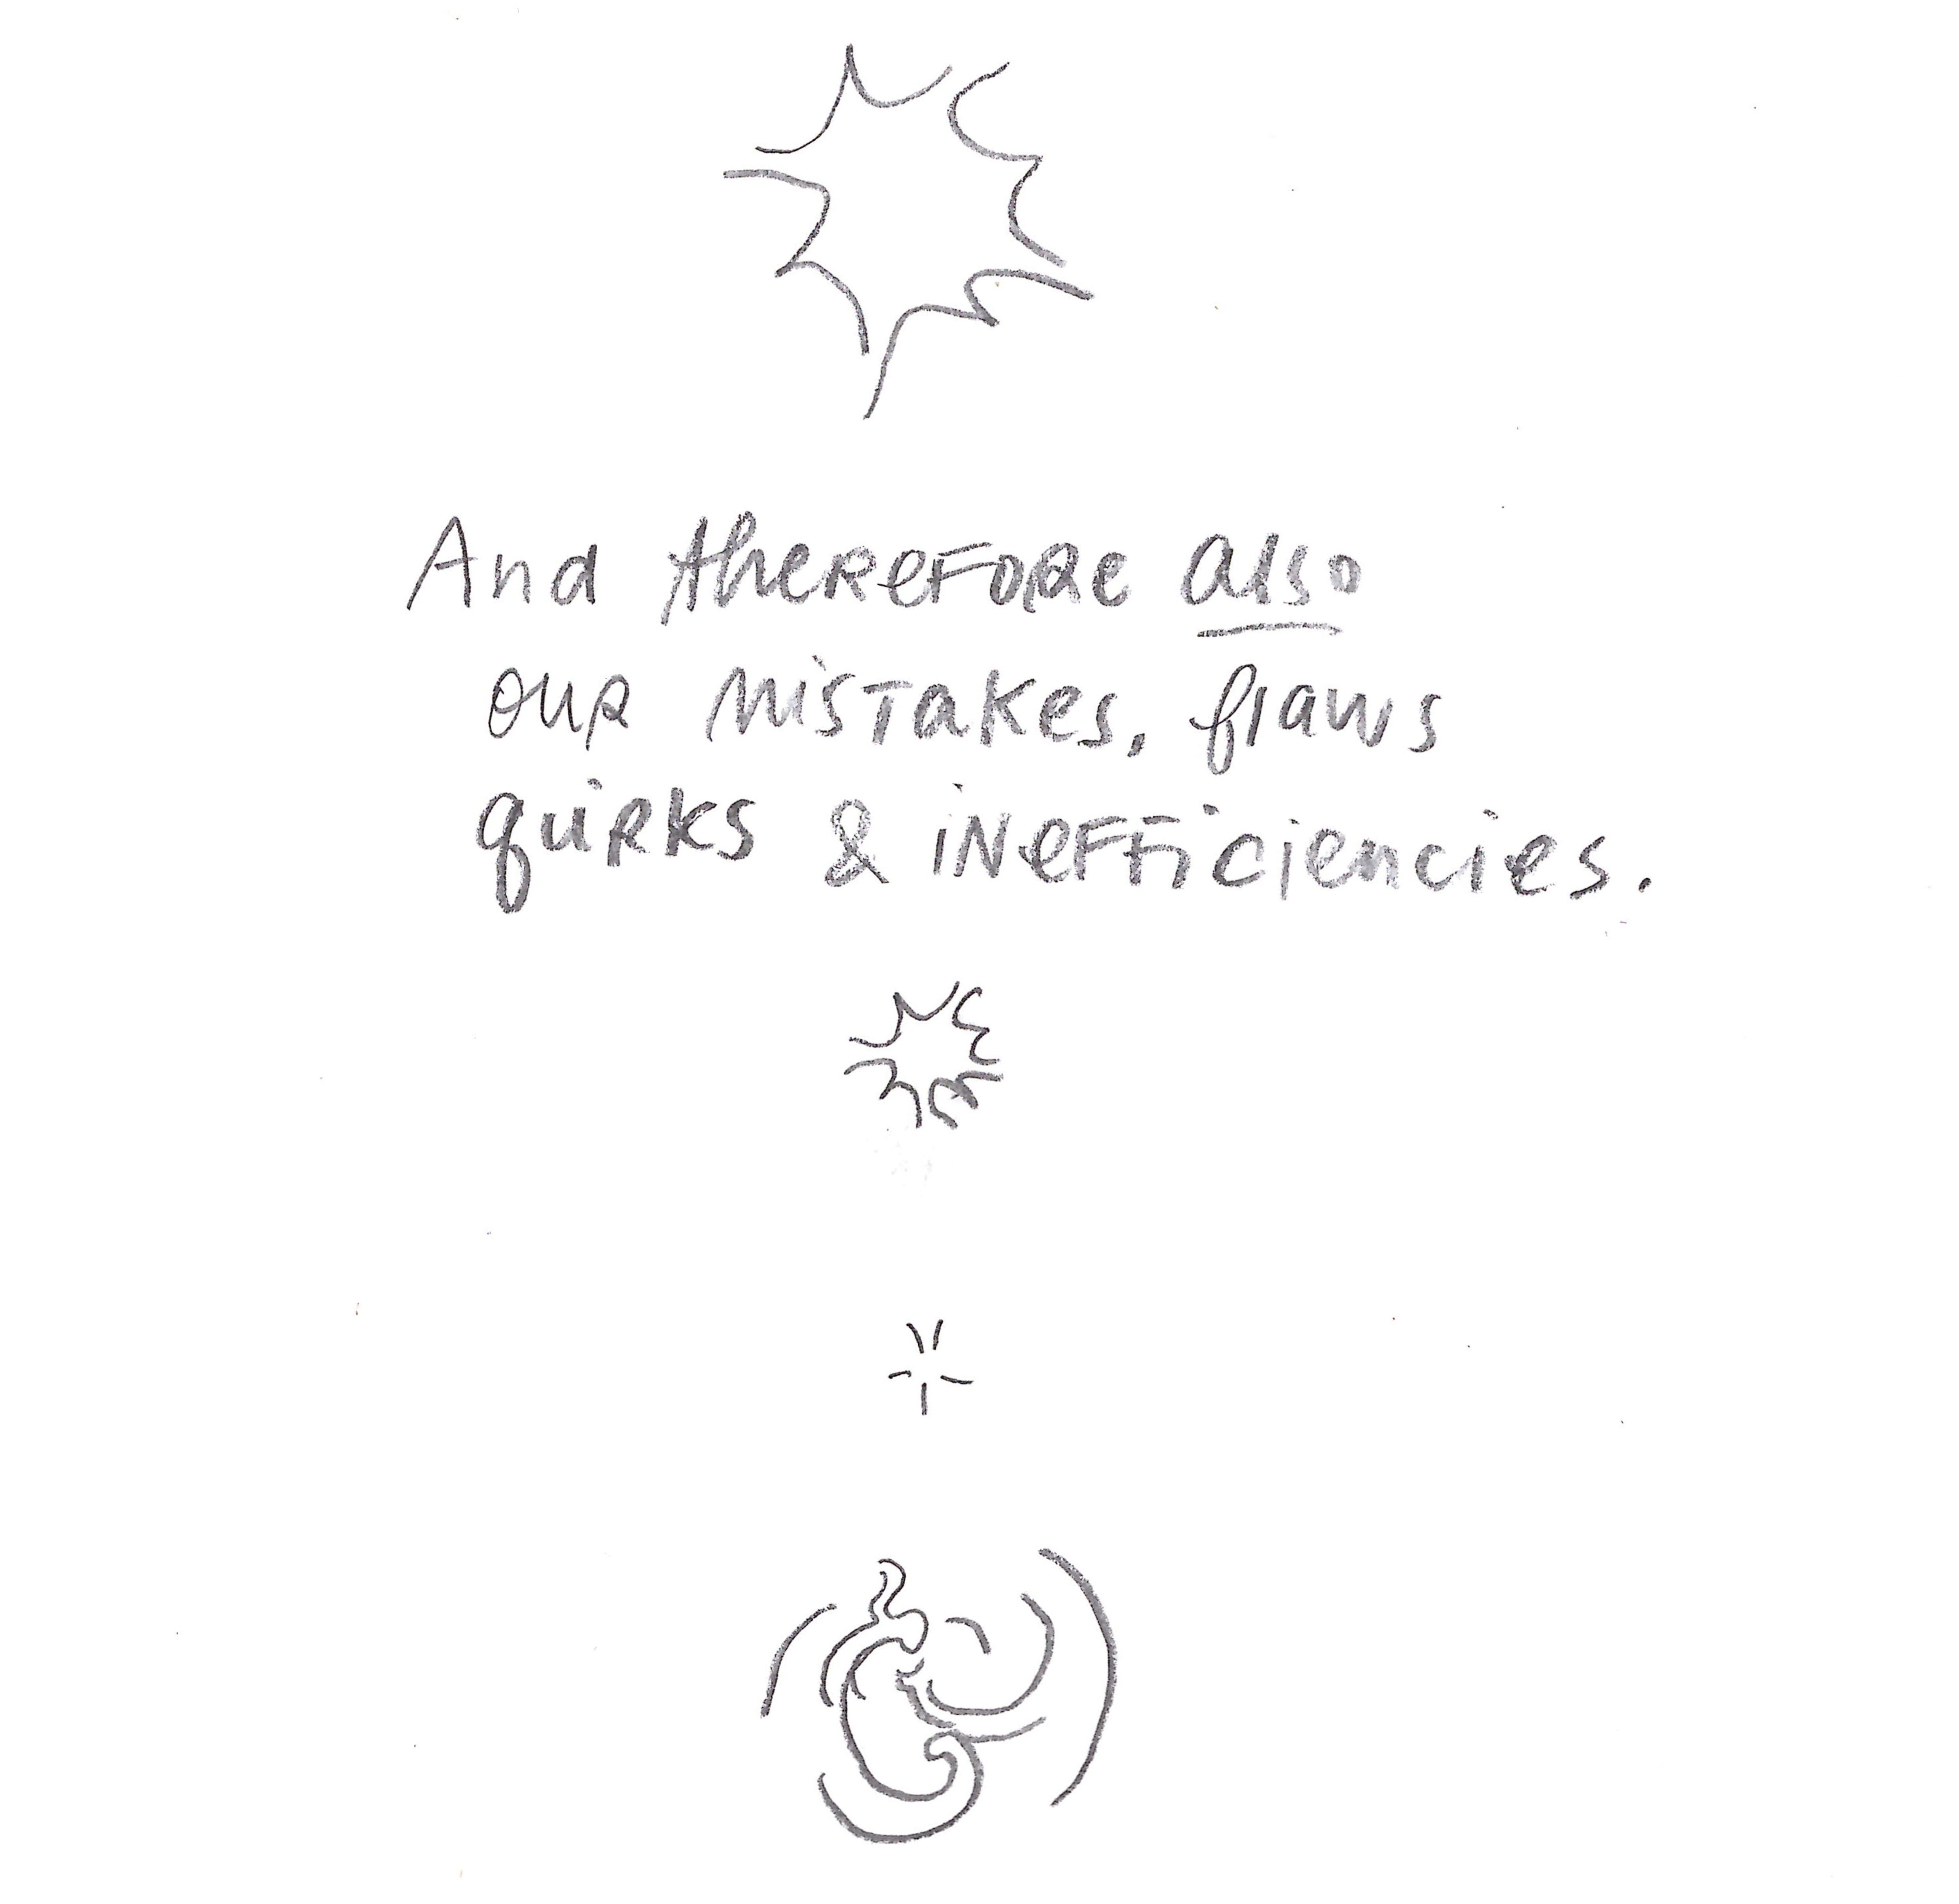 And therefore also
our mistakes, flaws
quirks & inefficiencies.